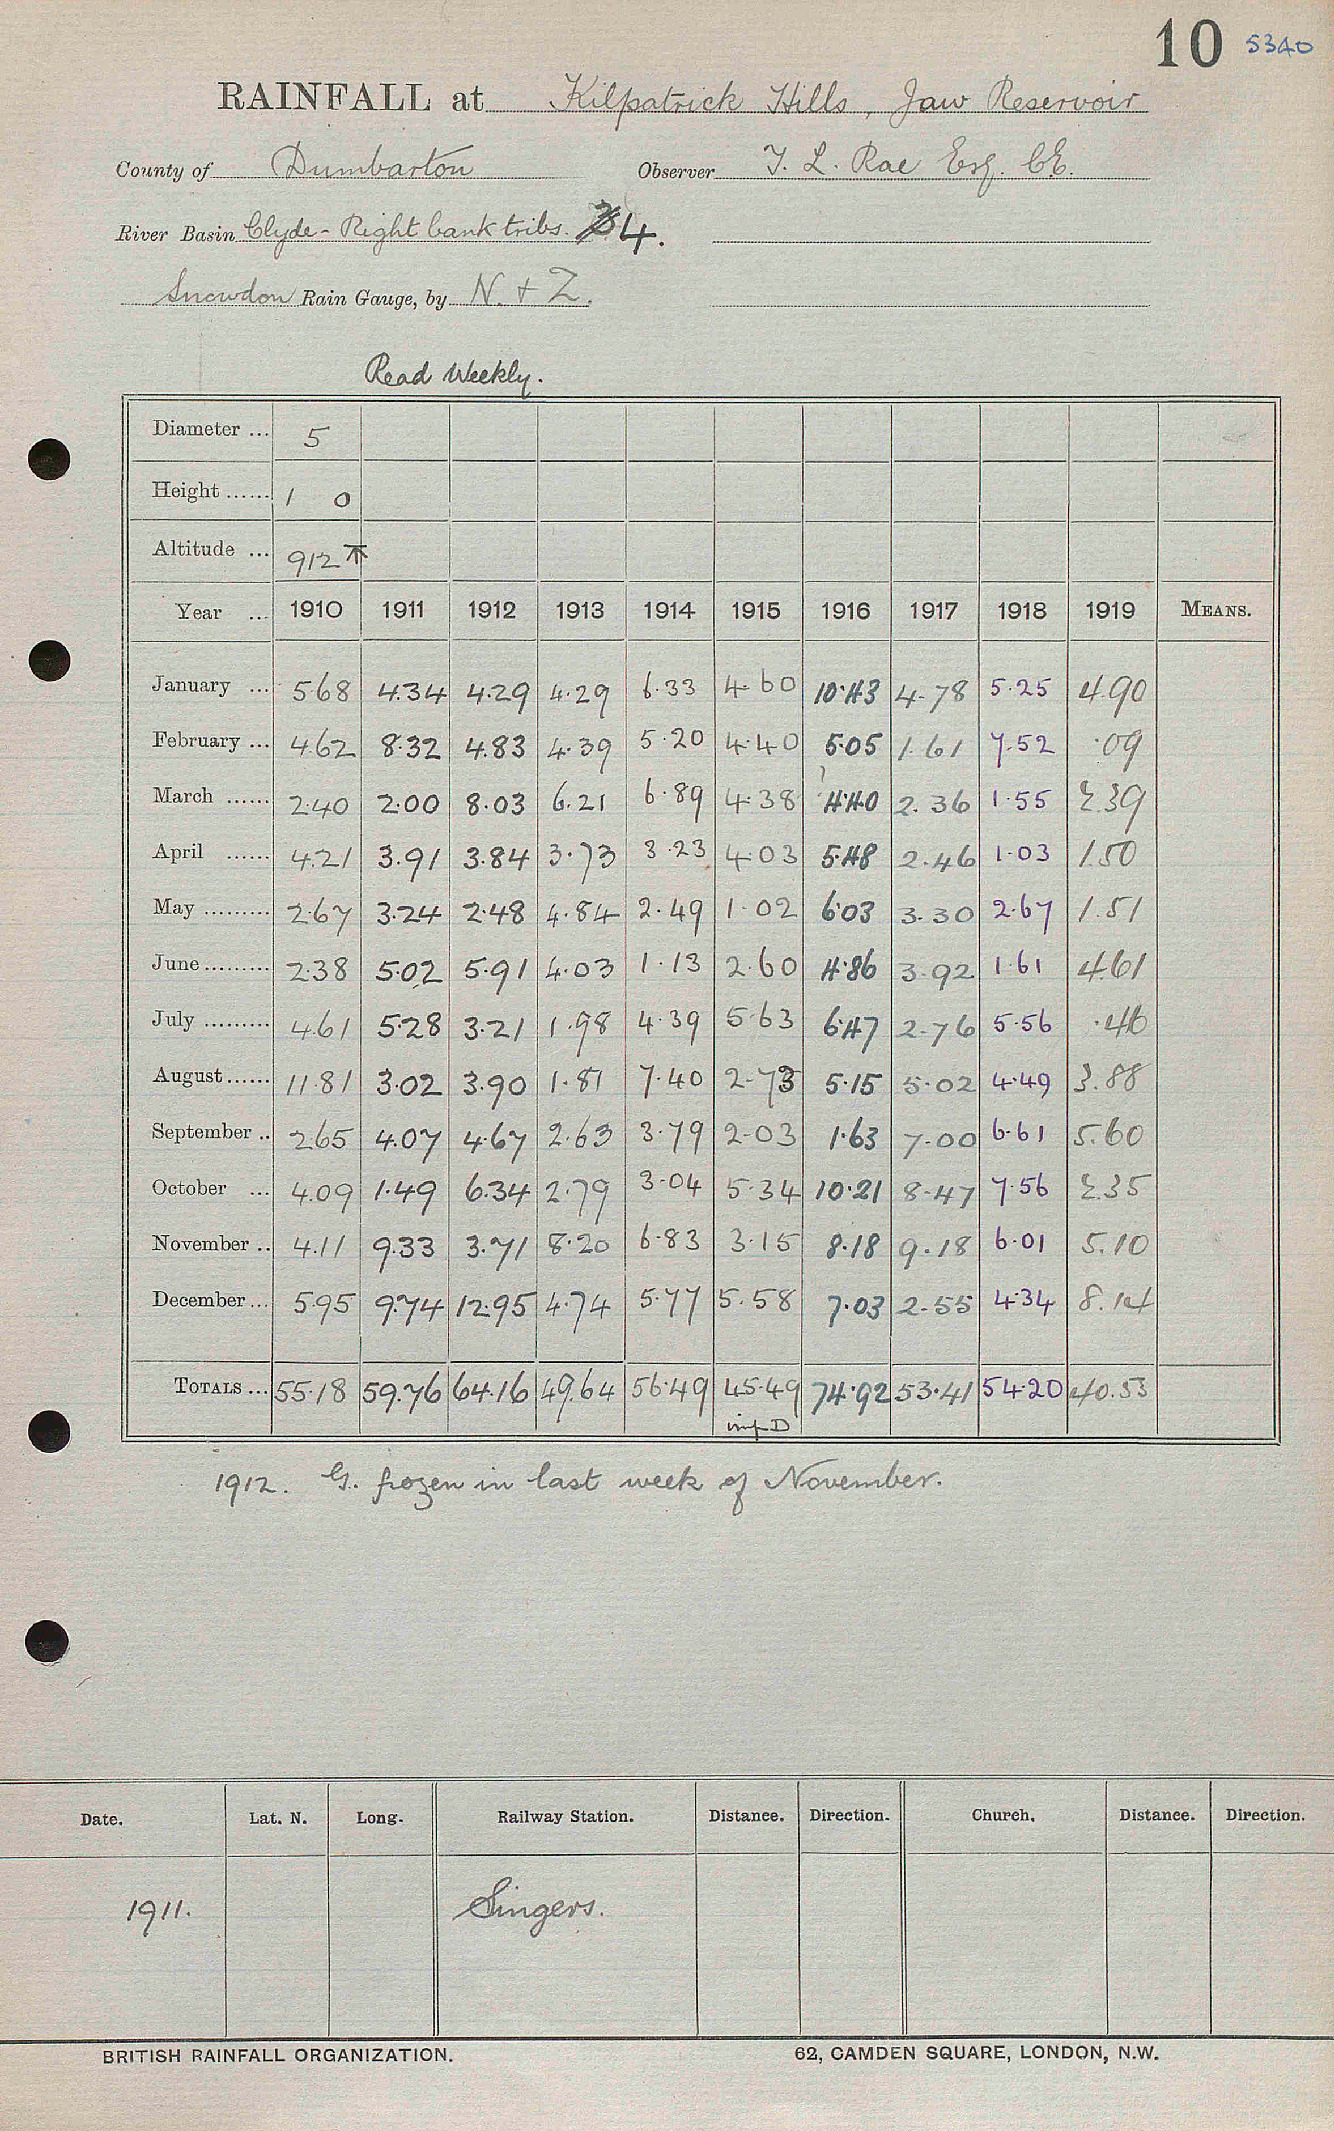 10 5340
RAINFALL at Kilpatrick Hills, Jaw Reservoir
County of Dumbarton Observer T. L. Rae Esq. C.E.
River Basin Clyde - Right bank tribs. 4.
Snowdon Rain Gauge, by N. + Z.
Read Weekly.
Diameter ... 5
Height ...... 1 0
Altitude ... 912
Year ... 1910 1911 1912 1913 1914 1915 1916 1917 1918 1919 MEANS.
January ... 5.68 4.34 4.29 4.29 6.33 4.60 10.43 4.78 5.25 4.90
February ... 4.62 8.32 4.83 4.39 5.20 4.40 5.05 1.61 7.52 .09
March ...... 2.40 2.00 8.03 6.21 6.89 4.38 4.40 2.36 1.55 2.39
April ...... 4.21 3.91 3.84 3.73 3.23 4.03 5.48 2.46 1.03 1.50
May ......... 2.67 3.24 2.48 4.84 2.49 1.02 6.03 3.30 2.67 1.51
June ......... 2.38 5.02 5.91 4.03 1.13 2.60 4.86 3.92 1.61 4.61
July ......... 4.61 5.28 3.21 1.98 4.39 5.63 6.47 2.76 5.56 .46
August ...... 11.81 3.02 3.90 1.81 7.40 2.73 5.15 5.02 4.49 3.88
September .. 2.65 4.07 4.67 2.63 3.79 2.03 1.63 7.00 6.61 5.60
October ... 4.09 1.49 6.34 2.79 3.04 5.34 10.21 8.47 7.56 2.35
November .. 4.11 9.33 3.71 8.20 6.83 3.15 8.18 9.18 6.01 5.10
December ... 5.95 9.74 12.95 4.74 5.77 5.58 7.03 2.55 4.34 8.14
TOTALS ... 55.18 59.76 64.16 49.64 56.49 45.49 74.92 53.41 54.20 40.53
1912. G. frozen in last week of November.
Date. Lat. N. Long. Railway Station. Distance. Direction. Church. Distance. Direction.
1911. Singers.
BRITISH RAINFALL ORGANIZATION. 62, CAMDEN SQUARE, LONDON, N.W.